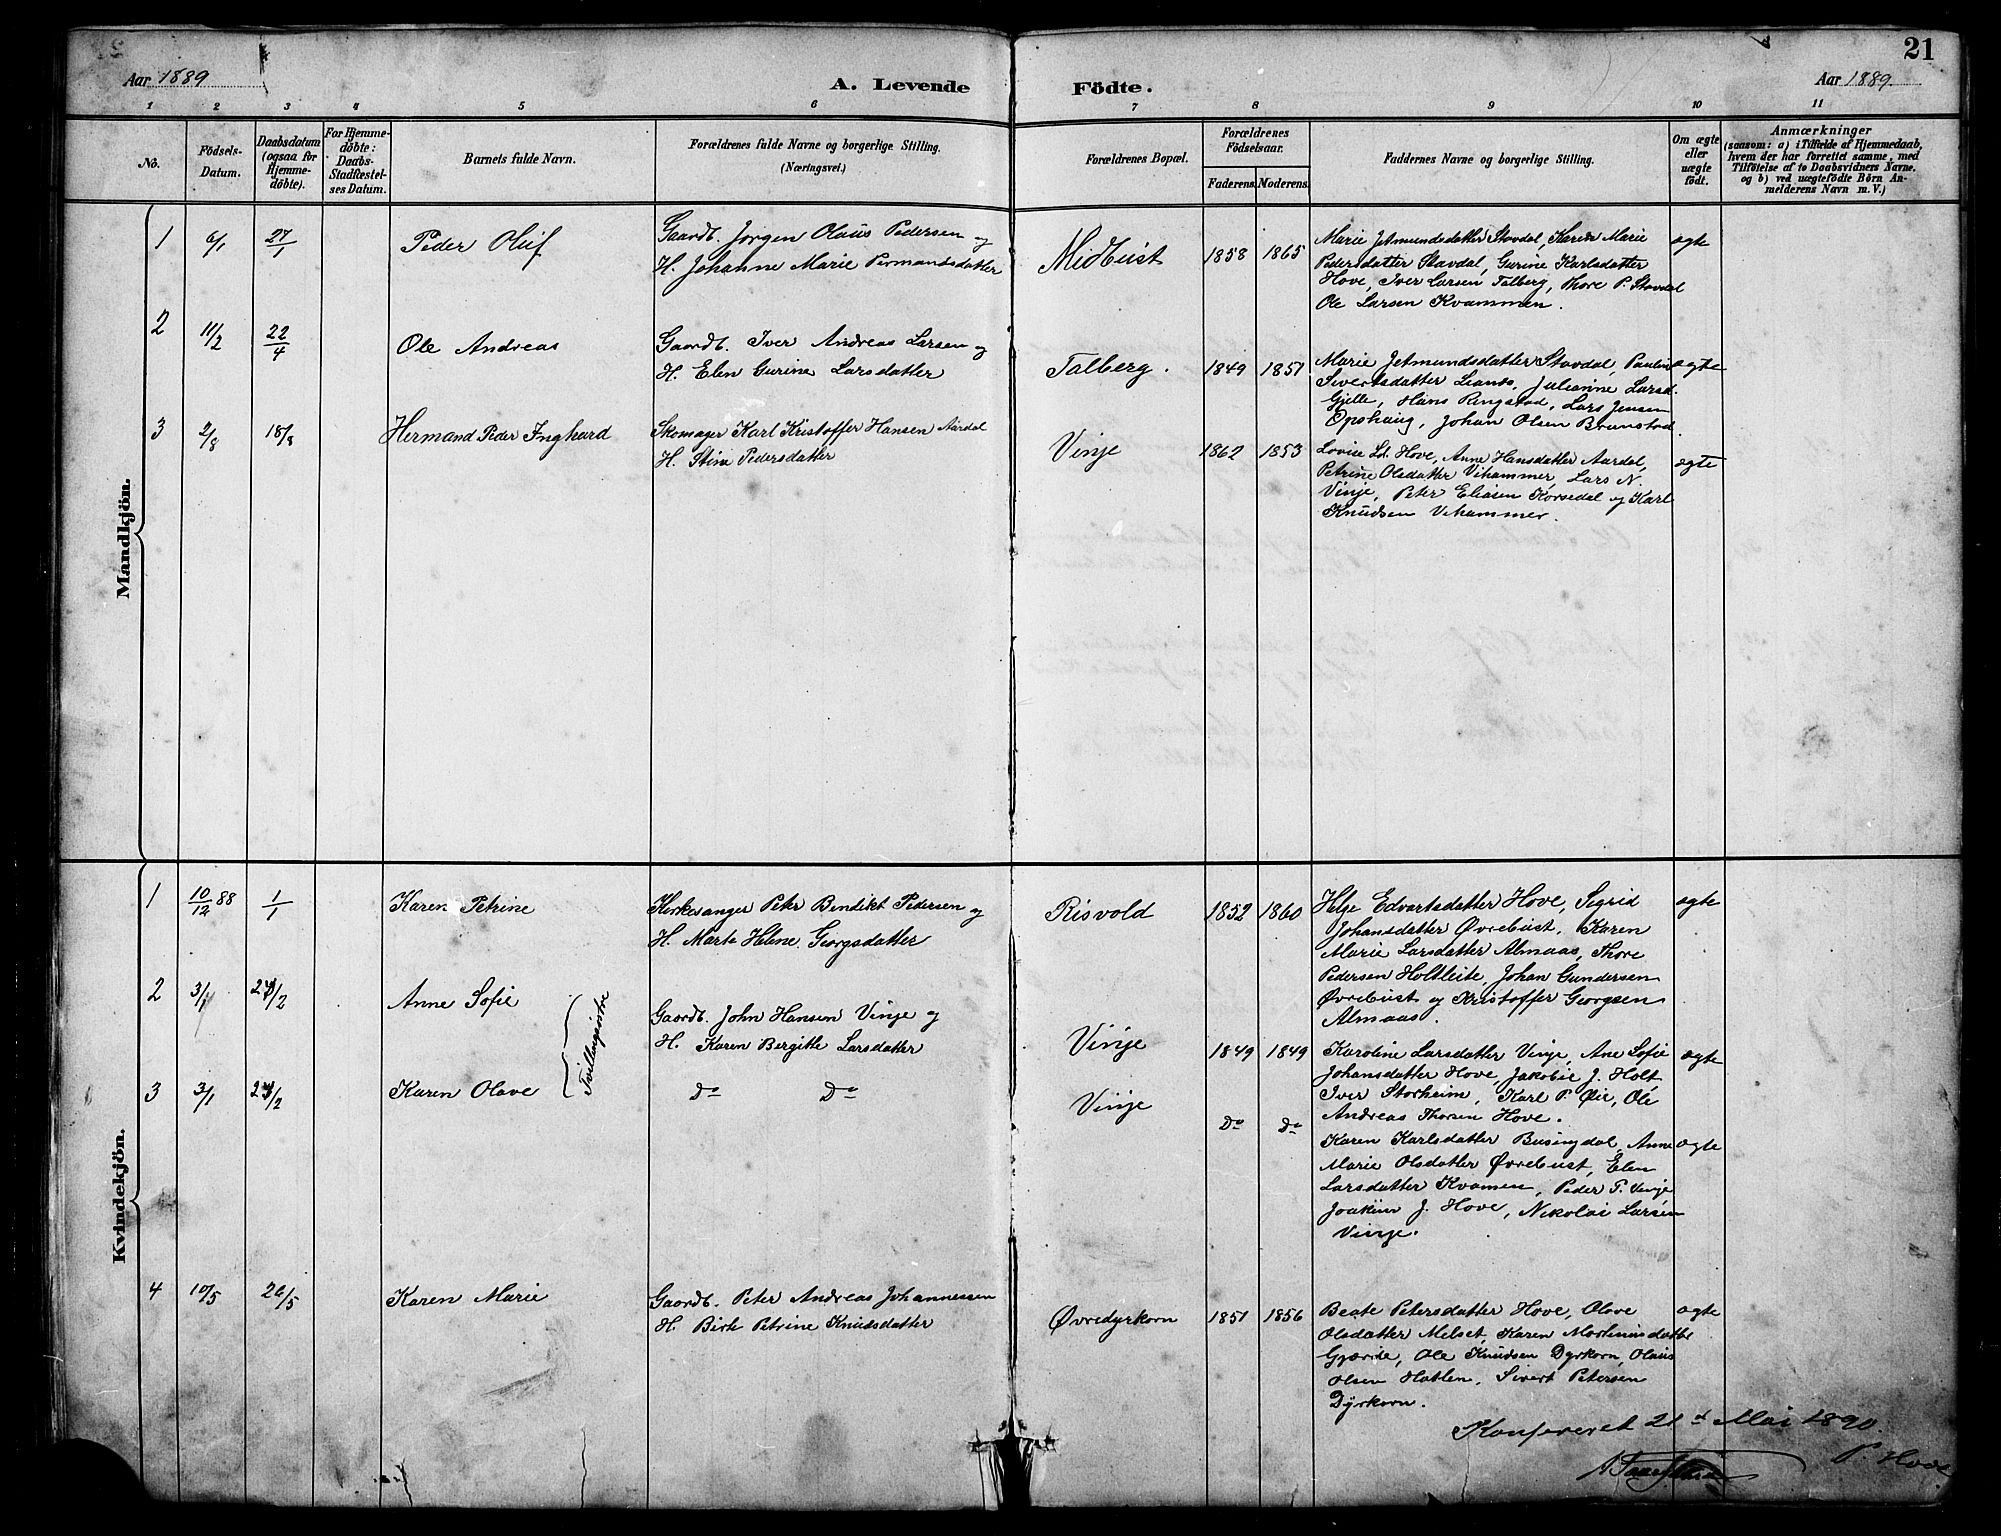 21
Aar 1889
A. Levende Födte.
Aar 1889.
1 2 3 4 5 6 7 8 9 10 11
No.
Födsels-Datum.
Daabsdatum (ogsaa for Hjemmedöbte).
For Hjemmedöbte: Daabs-Stadfæstelses Datum.
Barnets fulde Navn.
Forældrenes fulde Navne og borgerlige Stilling.
(Næringsvei.)
Forældrenes Bopæl.
Forældrenes Födselsaar.
Faderens. Moderens.
Faddernes Navne og borgerlige Stilling.
Om ægte eller uægte födt.
Anmærkninger
(saasom: a) i Tilfælde af Hjemmedaab, hvem der har forrettet samme, med Tilföielse af to Daabsvidners Navne. og b) ved uægtefödte Börn Anmelderens Navn m. V.)
Mandkjön.
1 6/1 27/1 Peder Oluf
Gaardb. Jørgen Olaus Pedersen og
H. Johanne Marie Permandsdatter
Midbust 1858 1865
Marie Jetmundsdatter Stavdal, Karen Marie
Pedersdatter Stavdal, Gurine Karlsdatter
Hove, Iver Larsen Talberg, Thore P. Stavdal
Ole Larsen Kvammen.
ægte
2 11/2 22/4 Ole Andreas
Gaardb. Iver Andreas Larsen og
H. Elen Gurine Larsdatter
Talberg. 1849 1851
Marie Jetmundsdatter Stavdal, Pauline
Sivertsdatter Lianes, Julianne Larsd.
Gjelle, Hans Ringstad, Lars Jensen
Opshaug, Johan Olsen Brunstad.
ægte
3 2/8 18/8 Hermand Peder Inghard
Skomager Karl Kristoffer Hansen Aardal
H. Stine Pedersdatter
Vinje 1862 1853
Lovise Hove, Anne Hansdatter Aardal,
Petrine Olsdatter Vihammer, Lars N.
Vinje, Peter Eliasen Korsedal og Karl
Knudsen Vihammer.
ægte
Kvindekjön.
1 10/12 88 1/1 Karen Petrine
Kirkesanger Peter Bendikt Pedersen og
H. Marte Helene Georgsdatter
Risvold 1852 1860
Helje Edvartsdatter Hove, Sigrid
Johansdatter Øvrebust, Karen
Marie Larsdatter Almaas, Thore
Pedersen Holtleite, Johan Gundersen
Øvrebust og Kristoffer Georgsen
Almaas.
ægte
2 3/1 24/2 Anne Sofie
Tvillingsøstre
Gaardb. John Hansen Vinje og
H. Karen Bergitte Larsdatter
Vinje 1849 1849
Karoline Larsdatter Vinje, Ane Sofie
Johansdatter Hove, Jakobie J. Holt
Iver Storheim, Karl P. Øie, Ole
Andreas Thorsen Hove.
ægte
3 3/1 24/2 Karen Olave
Do Do
Vinje Do Do
Karen Karlsdatter Busingdal, Anne
Marie Olsdatter Øvrebust, Elen
Larsdatter Kvamen, Peder P. Vinje
Joakim J. Hove, Nikolai Larsen
Vinje.
ægte
4 10/5 26/5 Karen Marie
Gaardb. Peter Andreas Johannessen
H. Birte Petrine Knudsdatter
Øvredyrkorn 1851 1856
Beate Petersdatter Hove, Olave
Olsdatter Melset, Karen Martinusdatter
Gjærde, Ole Knudsen Dyrkorn, Olaus
Olsen Hatlen, Sivert Petersen
Dyrkorn.
ægte
Konfereret 21d Mai 1890.
P. Hove